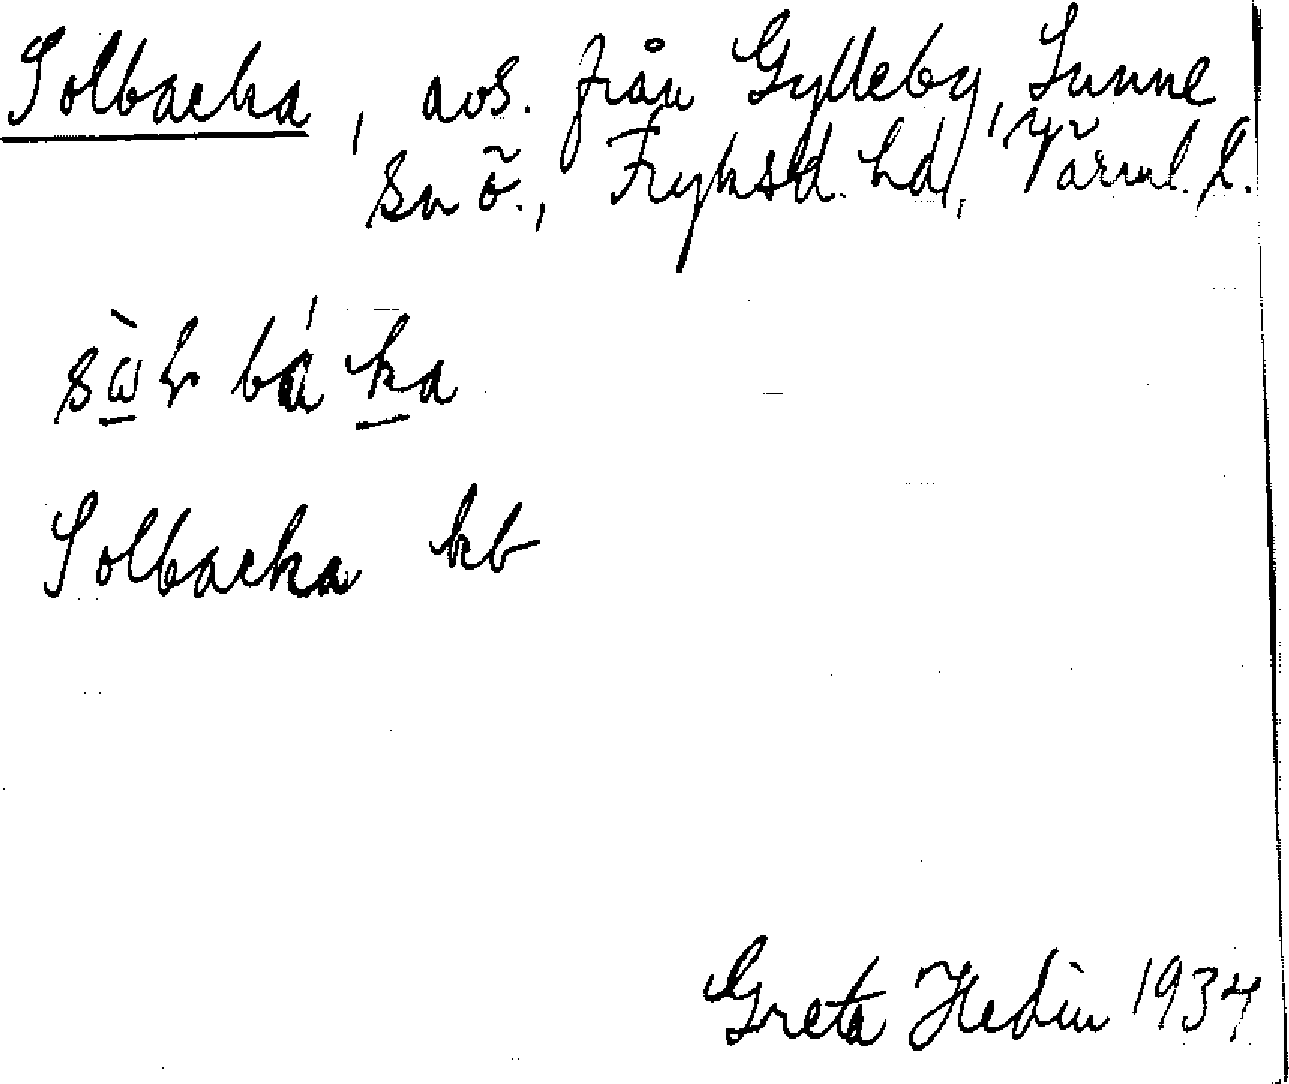 Solbacka, avs. från Gylleby, Sunne
sn ö., Fryksd. hd, Värml. l.
sὼɫ bá ka
Solbacka kb
Greta Hedin 1934